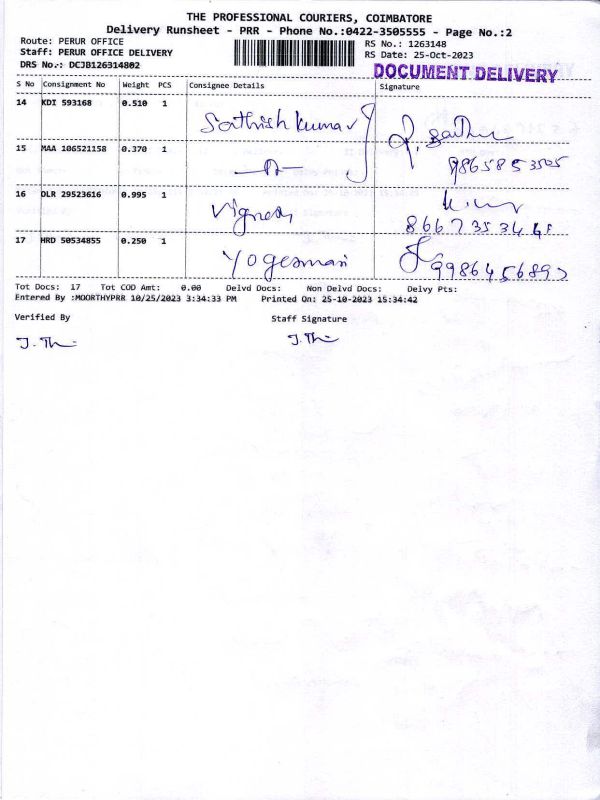 THE PROFESSIONAL COURIERS, COIMBATORE
Delivery Runsheet - PRR - Phone No.:0422-3505555 - Page No.:2
Route: PERUR OFFICE
Staff: PERUR OFFICE DELIVERY
DRS No.: DCJB126314802
RS No.: 1263148
RS Date: 25-Oct-2023
DOCUMENT DELIVERY
S No Consignment No Weight PCS Consignee Details Signature
14 KDI 593168 0.510 1 Sathish kumar
15 MAA 106521158 0.370 1
9865853505
16 DLR 29523616 0.995 1 Vignesh
17 HRD 50534855 0.250 1
Tot Docs: 17 Tot COD Amt: 0.00 Delvd Docs: Non Delvd Docs: Delvy Pts:
Entered By :MOORTHYPRR 10/25/2023 3:34:33 PM Printed On: 25-10-2023 15:34:42
Verified By Staff Signature